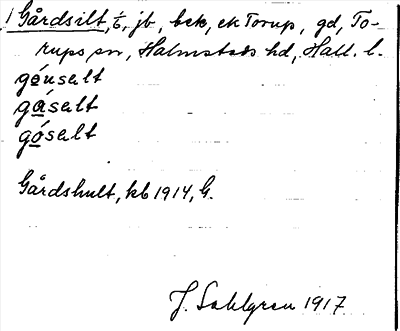 1 Gårdsilt, t, jb, bek, ek Torup, gd, To-
rups sn, Halmstads hd, Hall. l.
góuselt
gåselt
góselt
Gårdshult, kb 1914, G.
J. Sahlgren 1917